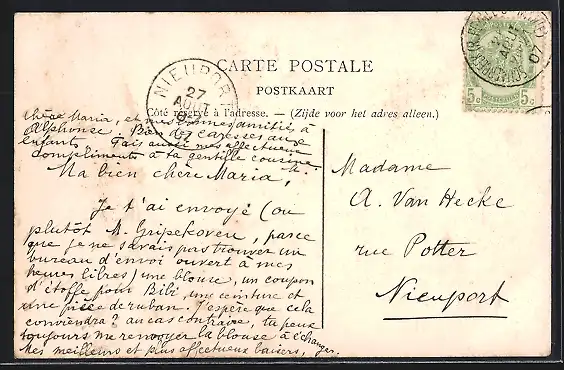 CARTE POSTALE
POSTKAART
Côté réservé à l'adresse. — (Zijde voor het adres alleen.)
NIEUPORT
27
AOUT
07
5c 5c
chère Maria, et mes bonnes amitiés à
Alphonse. Bien des caresses aux
enfants. Fais aussi mes affectueux
compliments à ta gentille cousine.
Ma bien chère Maria,
Je t'ai envoyé (ou
plutôt M. Gripekoven, parce
que je ne savais pas trouver un
bureau d'envoi ouvert à mes
heures libres) une blouse, un coupon
d'étoffe pour Bibi, une ceinture et
une pièce de ruban. J'espère que cela
conviendra? au cas contraire, tu peux
toujours me renvoyer la blouse à échanger.
Mes meilleurs et plus affectueux baisers,
Madame
A. Van Hecke
rue Potter
Nieuport